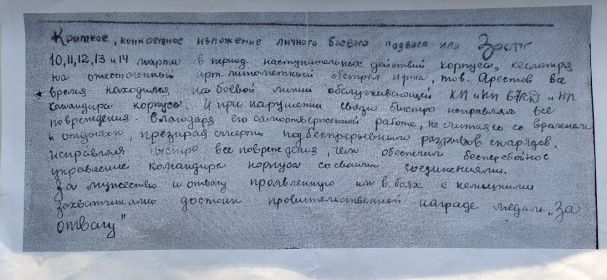 Краткое, конкретное изложение личного боевого подвига или Заслуг
10, 11, 12, 13 и 14 марта в период наступательных действий корпуса, несмотря
на ожесточенный арт. пулеметный обстрел врага, тов. Арестов все
время находился на боевой линии обслуживающей КП и НП и НП
командира корпуса. И при нарушении связи быстро исправлял все
повреждения. Благодаря его самоотверженной работе, не считаясь со временем
и отдыхом, презирая смерть под беспрерывными разрывов снарядов,
исправлял быстро все повреждения, чем обеспечил бесперебойное
управление командира корпуса со своими соединениями.
За мужество и отвагу проявленную им в боях с немецкими
захватчиками достоин правительственной награде медали "За
отвагу"